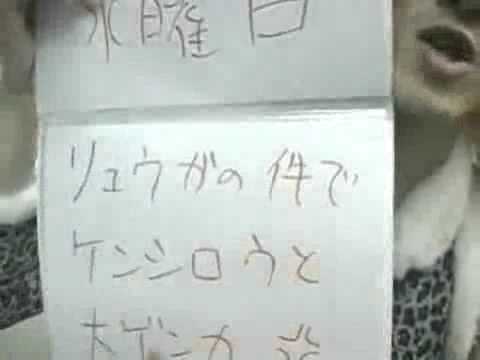 水曜日
リュウガの件で
ケンシロウと
大ゲンカ